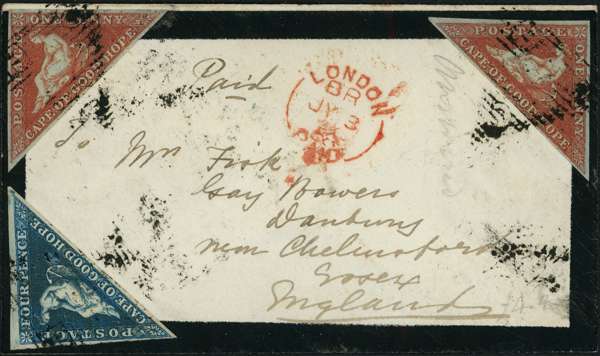 POSTAGE
ONE PENNY
CAPE OF GOOD HOPE
POSTAGE
ONE PENNY
CAPE OF GOOD HOPE
Paid
LONDON
BR
JY 3
PAID
To Mrs Fisk
Gay Bowers
Danbury
near Chelmsford
Essex
England
FOUR PENCE
CAPE OF GOOD HOPE
POSTAGE